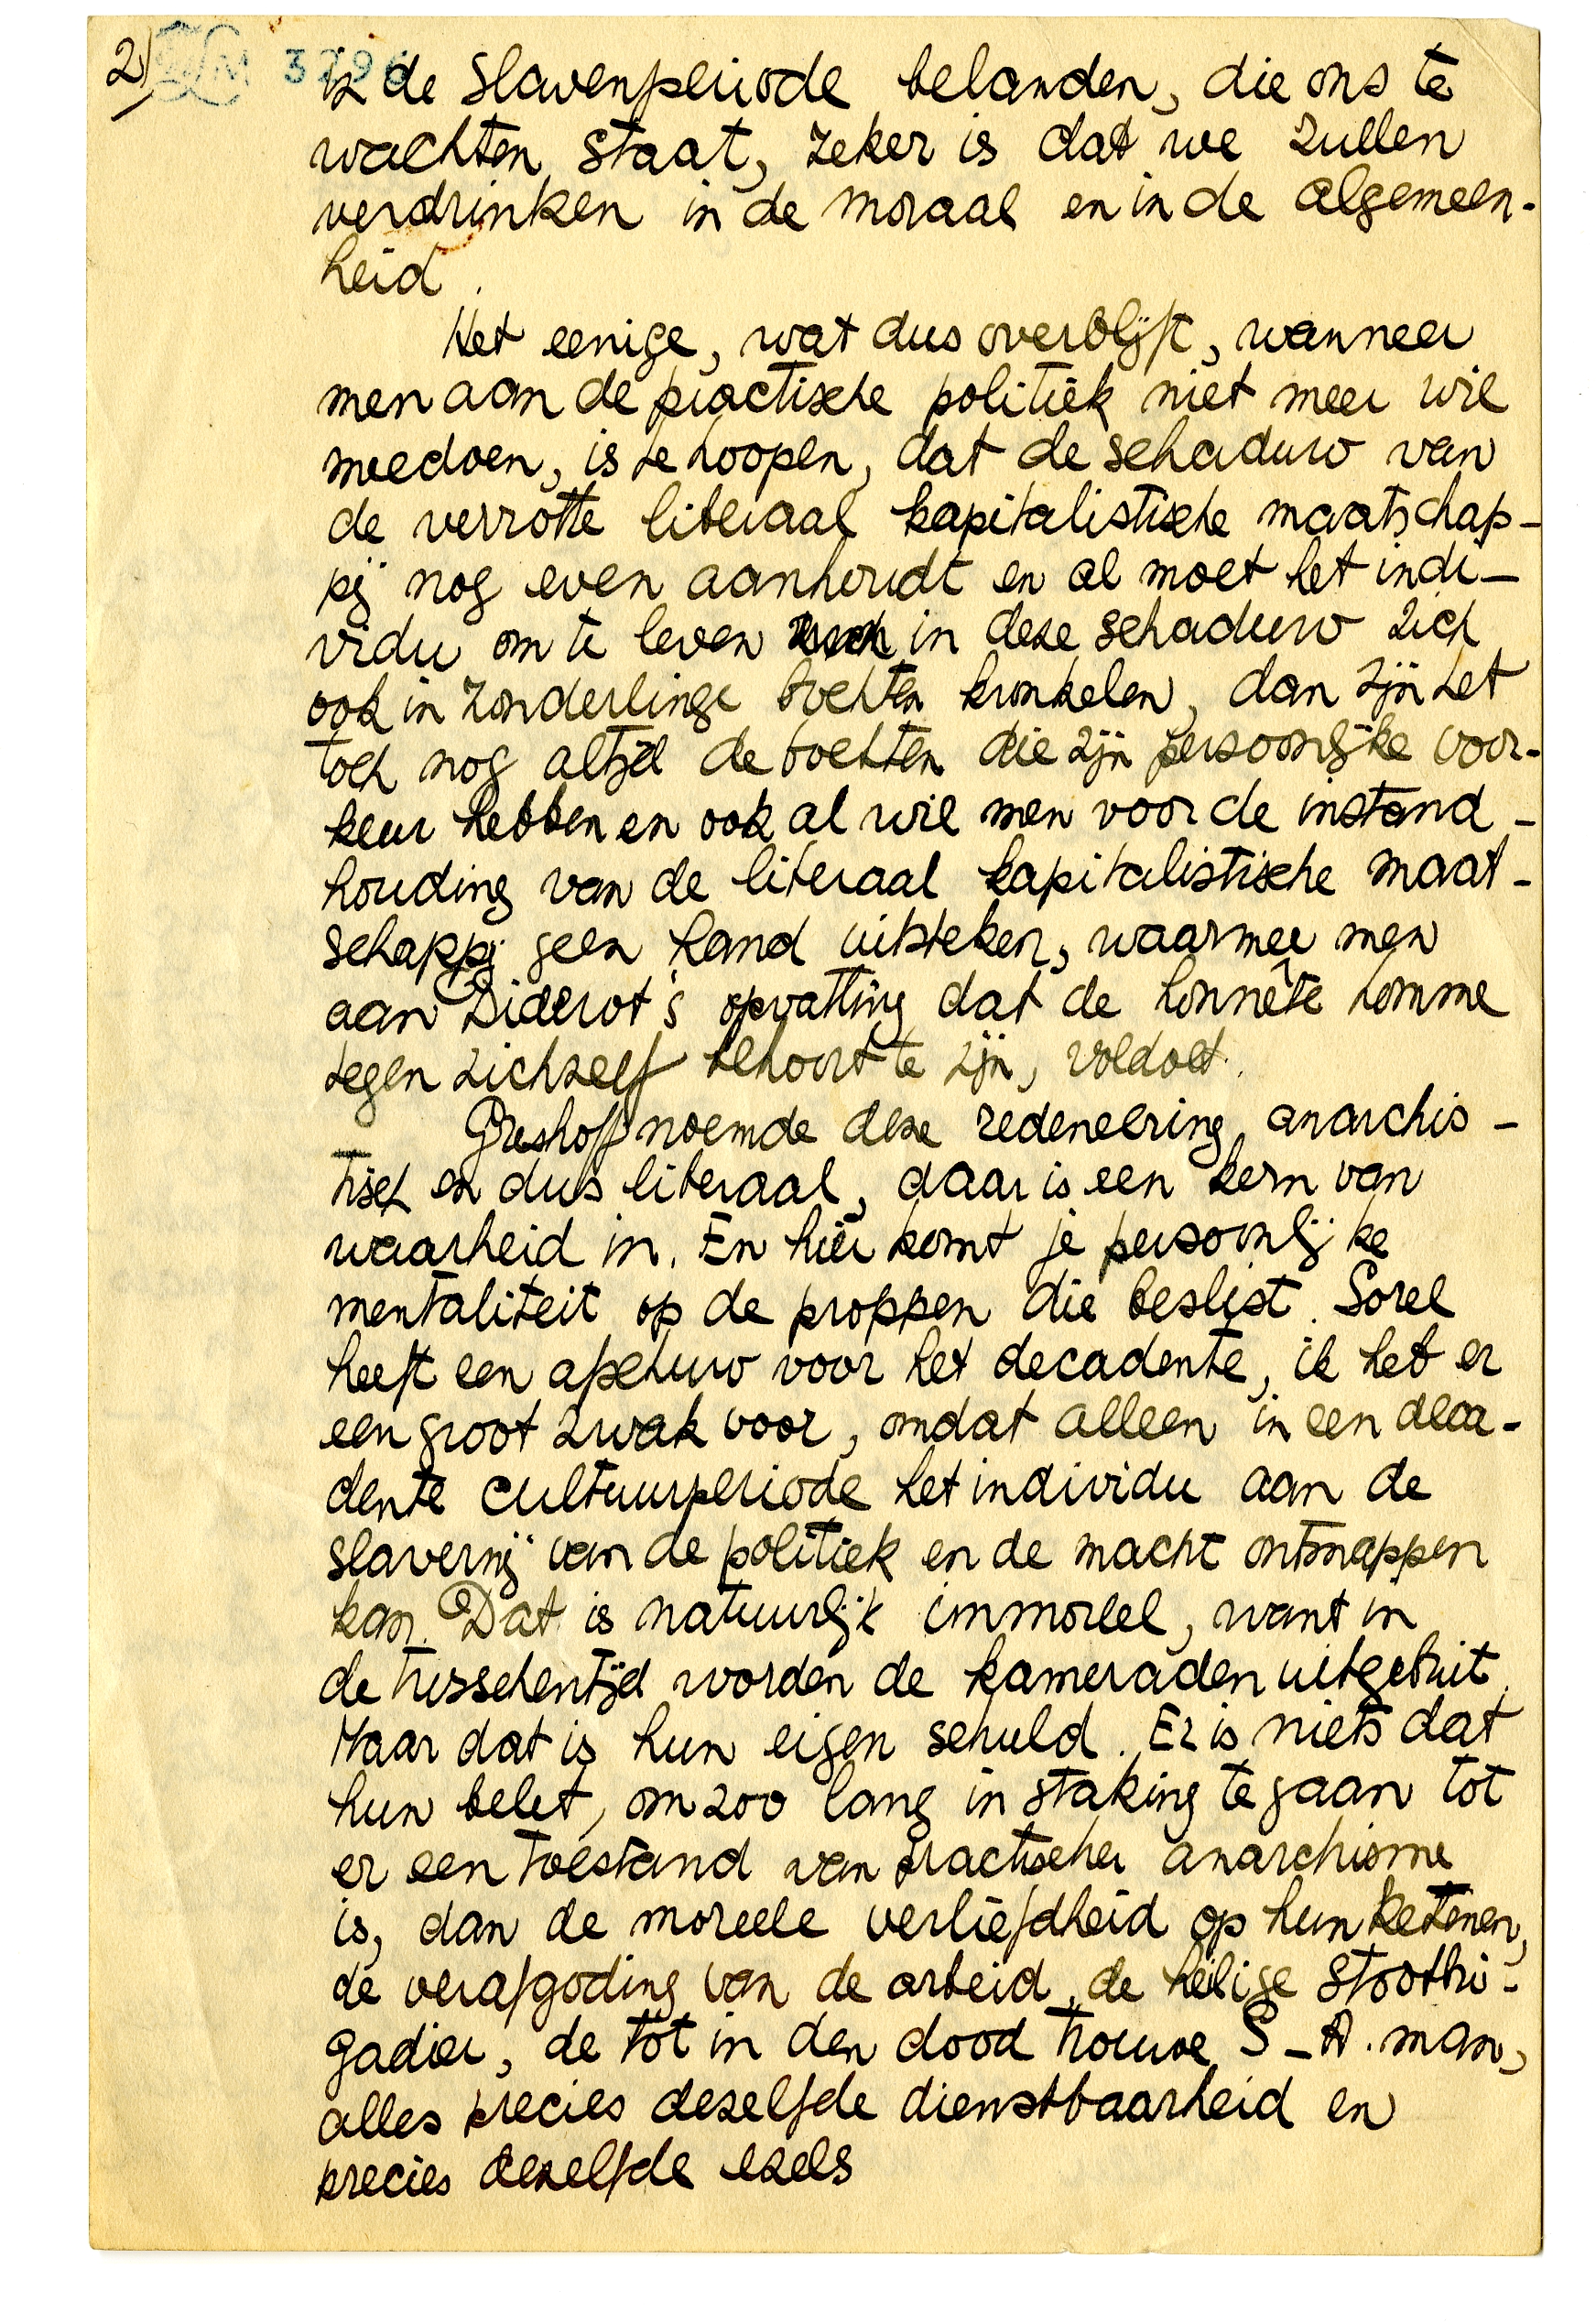 2)
LM 3796
in de slavenperiode belanden, die ons te
wachten staat, zeker is dat we zullen
verdrinken in de moraal en in de algemeen-
heid.
Het eenige, wat dus overblijft, wanneer
men aan de practische politiek niet meer wil
meedoen, is te hoopen, dat de schaduw van
de verrotte liberaal kapitalistische maatschap-
pij nog even aanhoudt en al moet het indi-
vidu om te leven in deze schaduw zich
ook in zonderlinge bochten kronkelen, dan zijn het
toch nog altijd de bochten die zijn persoonlijke voor-
keur hebben en ook al wil men voor de instand-
houding van de liberaal kapitalistische maat-
schappij geen hand uitsteken, waarmee men
aan Diderot's opvatting dat de honnête homme
tegen zichzelf behoort te zijn, voldoet.
Greshoff noemde deze redeneering anarchis-
tisch en dus liberaal, daar is een kern van
waarheid in. En hier komt je persoonlijke
mentaliteit op de proppen die beslist. Sorel
heeft een afschuw voor het decadente, ik heb er
een groot zwak voor, omdat alleen in een deca-
dente cultuurperiode het individu aan de
slavernij van de politiek en de macht ontsnappen
kan. Dat is natuurlijk immoreel, want in
de tusschentijd worden de kameraden uitgebuit.
Maar dat is hun eigen schuld. Er is niets dat
hun belet, om zoo lang in staking te gaan tot
er een toestand van practischer anarchisme
is, dan de moreele verliefdheid op hun ketenen,
de verafgoding van de arbeid, de heilige stootbri-
gadier, de tot in den dood trouwe S-A. man,
alles precies dezelfde dienstbaarheid en
precies dezelfde ezels